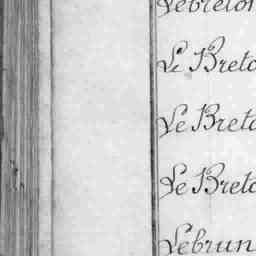 Lebreton
Le Breto
Le Breto
Le Breto
Lebrun